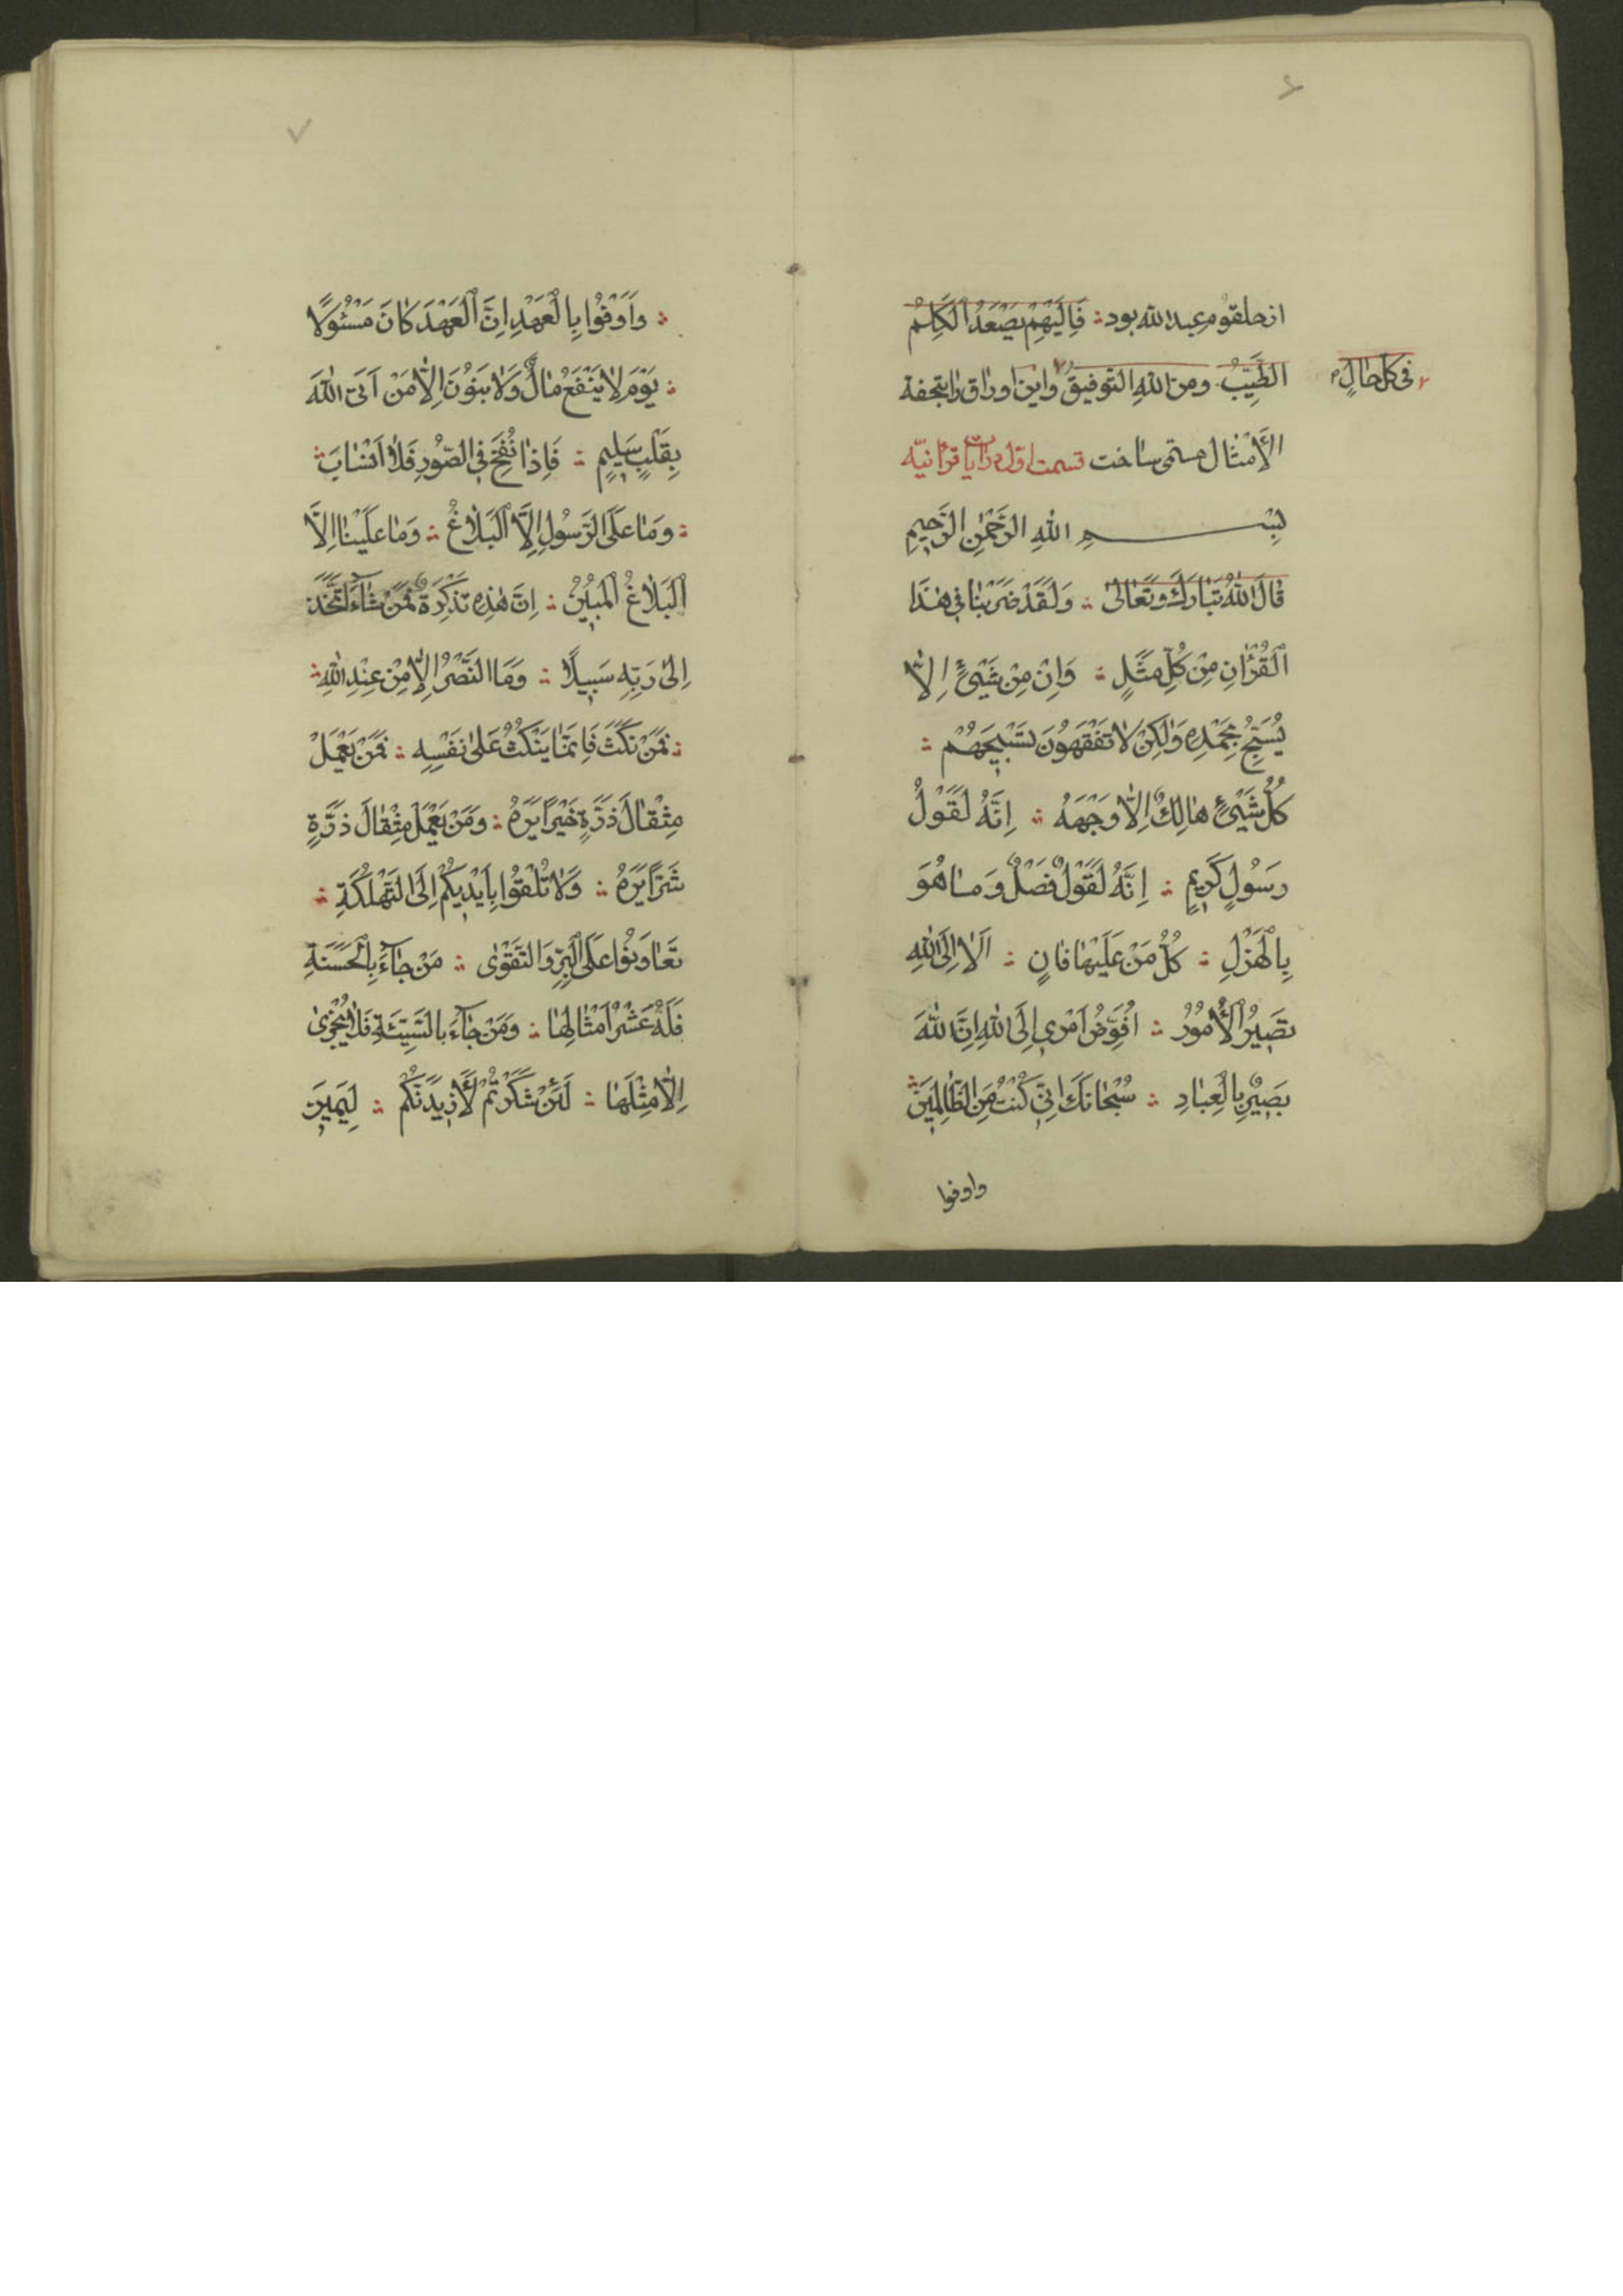 ۶
از حلقوم عبد الله بود ؞ فَاِلَيْهِمْ يَصْعَدُ الْكَلِمُ
الطَّيِّبُ ومن اللهِ التّوفيقُ ۲ واین اوراق را بتحفة
۲ فی كل حالٍ م
الْأَمْثال مسمّی ساخت قسمت اوّل در آیات قرانیّه
بِسْمِ اللهِ الرَّحْمٰنِ الرَّحِيمِ
قَالَ اللهُ تَبَارَكَ وَتَعَالىٰ ؞ وَلَقَدْ ضَرَبْنَا فِي هٰذَا
اَلْقُرْاٰنِ مِنْ كُلِّ مَثَلٍ ؞ وَاِنْ مِنْ شَيْئٍ اِلَّا
يُسَبِّحُ بِحَمْدِهِ وَلٰكِنْ لَا تَفْقَهُونَ تَسْبِيحَهُمْ ؞
كُلُّ شَيْئٍ هَالِكٌ اِلَّا وَجْهَهُ ؞ اِنَّهُ لَقَوْلُ
رَسُولٍ كَرِيمٍ ؞ اِنَّهُ لَقَوْلٌ فَصْلٌ وَمَا هُوَ
بِالْهَزْلِ ؞ كُلُّ مَنْ عَلَيْهَا فَانٍ ؞ اَلَا اِلَى اللهِ
تَصِيرُ الْأُمُوُرُ ؞ اُفَوِّضُ اَمْرِي اِلَى اللهِ اِنَّ اللهَ
بَصِيْرٌ بِالْعِبَادِ ؞ سُبْحَانَكَ اِنِّي كُنْتُ مِنَ الظَّالِمِينَ ؞
واوفوا
۷
؞ وَاَوْفُوْا بِالْعَهْدِ اِنَّ الْعَهْدَ كَانَ مَسْئُولًا
؞ يَوْمَ لَا يَنْفَعُ مَالٌ وَلَا بَنُوْنَ اِلَّا مَنْ اَتَى اللهَ
بِقَلْبٍ سَلِيمٍ ؞ فَاِذَا نُفِخَ فِي الصُّوُرِ فَلَا اَنْسَابَ ؞
؞ وَمَا عَلَى الرَّسُولِ اِلَّا الْبَلَاغُ ؞ وَمَا عَلَيْنَا اِلَّا
اَلْبَلَاغُ الْمُبِيْنُ ؞ اِنَّ هٰذِهِ تَذْكِرَةٌ فَمَنْ شَآءَ اتَّخَذَ
اِلىٰ رَبِّهِ سَبِيلًا ؞ وَمَا النَّصْرُ اِلَّا مِنْ عِنْدِ اللهِ ؞
؞ فَمَنْ نَكَثَ فَاِنَّمَا يَنْكُثُ عَلىٰ نَفْسِهِ ؞ فَمَنْ يَعْمَلْ
مِثْقَالَ ذَرَّةٍ خَيْرًا يَرَهُ ؞ وَمَنْ يَعْمَلْ مِثْقَالَ ذَرَّةٍ
شَرًّا يَرَهُ ؞ وَلَا تُلْقُوْا بِاَيْدِيكُمْ اِلَى التَّهْلُكَةِ ؞
تَعَاوَنُوْا عَلَى الْبِرِّ وَالتَّقْوٰى ؞ مَنْ جَآءَ بِالْحَسَنَةِ
فَلَهُ عَشْرُ اَمْثَالِهَا ؞ وَمَنْ جَآءَ بِالسَّيِّئَةِ فَلَا يُجْزىٰ
اِلَّا مِثْلَهَا ؞ لَئِنْ شَكَرْتُمْ لَأَزِيدَنَّكُمْ ؞ لِيَمِيزَ